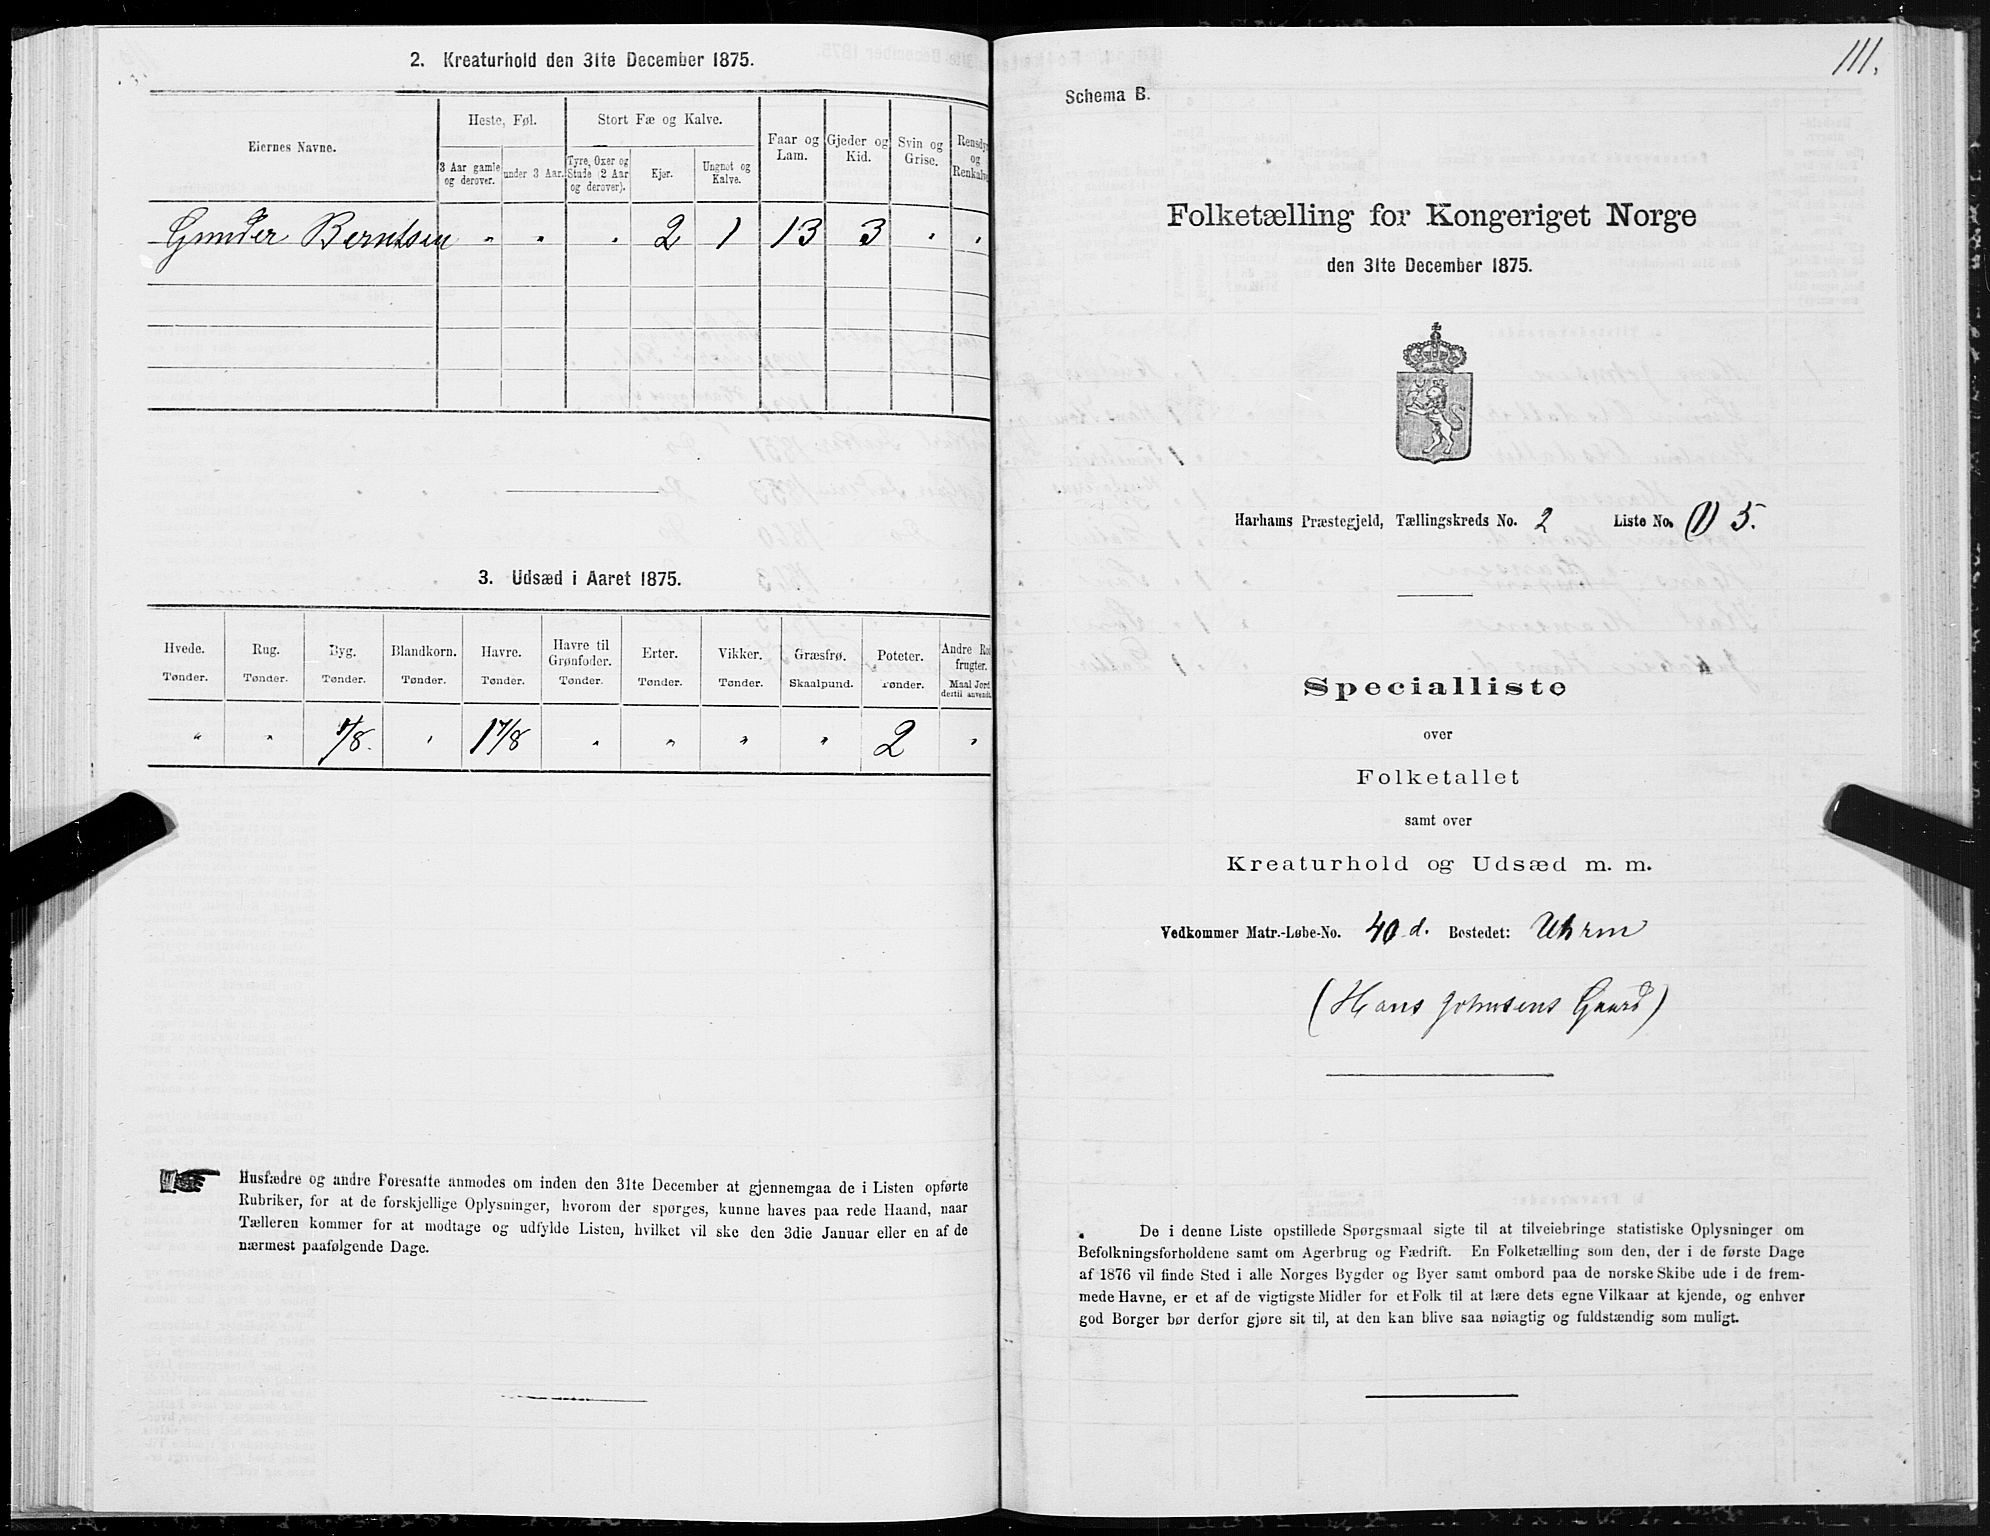 2. Kreaturhold den 31te December 1875.
Eiernes Navne.
Heste, Føl.
Stort Fæ og Kalve.
Faar og Lam.
Gjeder og Kid.
Svin og Grise.
Rensdyr og Renkalve
3 Aar gamle og derover.
under 3 Aar.
Tyre, Oxer og Stude (2 Aar og derover).
Kjør.
Ungnøt og Kalve.
Gunder Berntsen " " " 2 1 13 3 " "
3. Udsæd i Aaret 1875.
Hvede. Rug. Byg. Blandkorn. Havre. Havre til Grønfoder. Erter. Vikker. Græsfrø. Poteter. Andre Rod frugter.
Tønder. Tønder. Tønder. Tønder. Tønder. Tønder. Tønder. Tønder. Skaalpund. Tønder. Maal Jord dertil anvendt
" " " " " " " 2 "
Husfædre og andre Foresatte anmodes om inden den 31te December at gjennemgaa de i Listen opførte
Rubriker, for at de forskjellige Oplysninger, hvorom der spørges, kunne haves paa rede Haand, naar
Tælleren kommer for at modtage og udfylde Listen, hvilket vil ske den 3die Januar eller en af de
nærmest paafølgende Dage.
111.
Schema B.
Folketælling for Kongeriget Norge
den 31te December 1875.
Harhams Præstegjeld, Tællingskreds No. 2 Liste No. (1) 5.
Specialliste
over
Folketallet
samt over
Kreaturhold og Udsæd m. m.
Vedkommer Matr.-Løbe-No. 40 d. Bostedet:
(Hans Johnsens Gaard)
De i denne Liste opstillede Spørgsmaal sigte til at tilveiebringe statistiske Oplysninger om
Befolkningsforholdene samt om Agerbrug og Fædrift. En Folketælling som den, der i de første Dage
af 1876 vil finde Sted i alle Norges Bygder og Byer samt ombord paa de norske Skibe ude i de frem-
mede Havne, er et af de vigtigste Midler for et Folk til at lære dets egne Vilkaar at kjende, og enhver
god Borger bør derfor gjøre sit til, at den kan blive saa nøiagtig og fuldstændig som muligt.